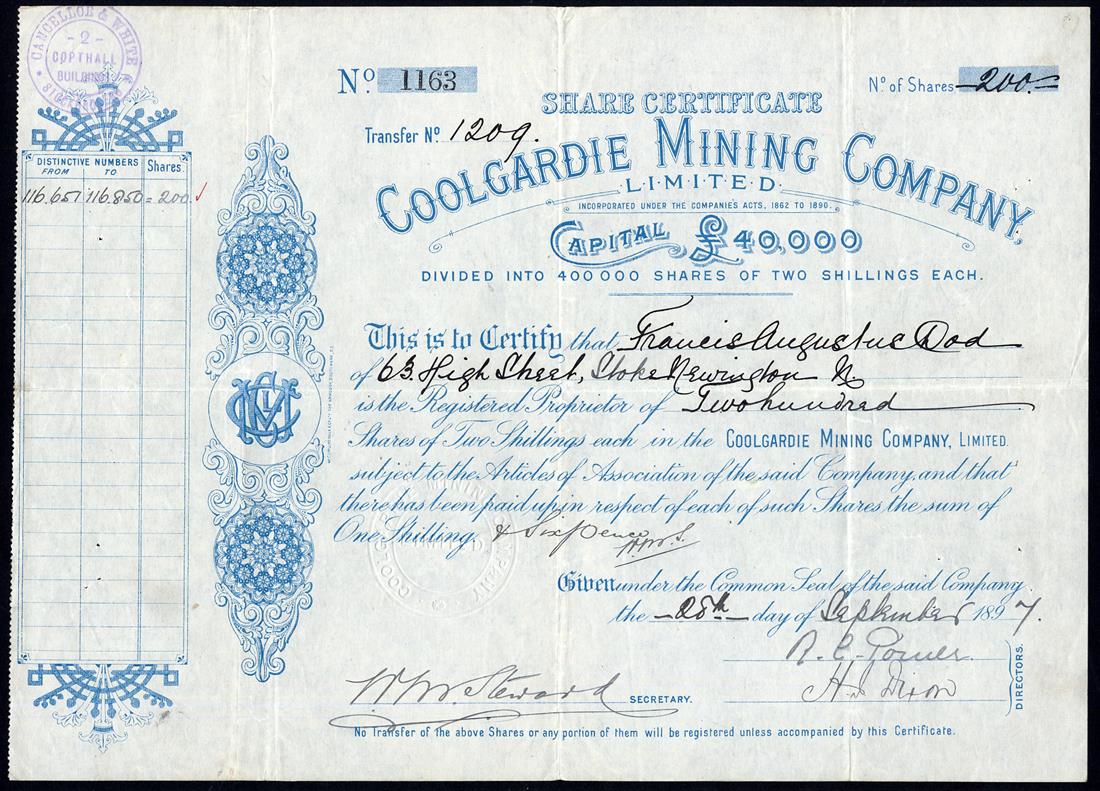 CANCELLOR & WHITE
- 2 -
COPTHALL
BUILDINGS
No. 1163
No. of Shares 200.-
SHARE CERTIFICATE
Transfer No. 1209.
COOLGARDIE MINING COMPANY,
LIMITED.
INCORPORATED UNDER THE COMPANIES ACTS, 1862 TO 1890.
CAPITAL £40,000
DIVIDED INTO 400000 SHARES OF TWO SHILLINGS EACH.
DISTINCTIVE NUMBERS Shares.
FROM TO
116,651 116,850 = 200 ✓
This is to Certify that Francis Augustus Dod
of 63. High Street, Stoke Newington N.
is the Registered Proprietor of Two hundred
Shares of Two Shillings each in the COOLGARDIE MINING COMPANY, LIMITED.
subject to the Articles of Association of the said Company, and that
there has been paid up in respect of each of such Shares the sum of
One Shilling & Sixpence
Given under the Common Seal of the said Company
the 28th day of September 1897.
H. Dixon
DIRECTORS.
W. W. Steward SECRETARY.
No Transfer of the above Shares or any portion of them will be registered unless accompanied by this Certificate.